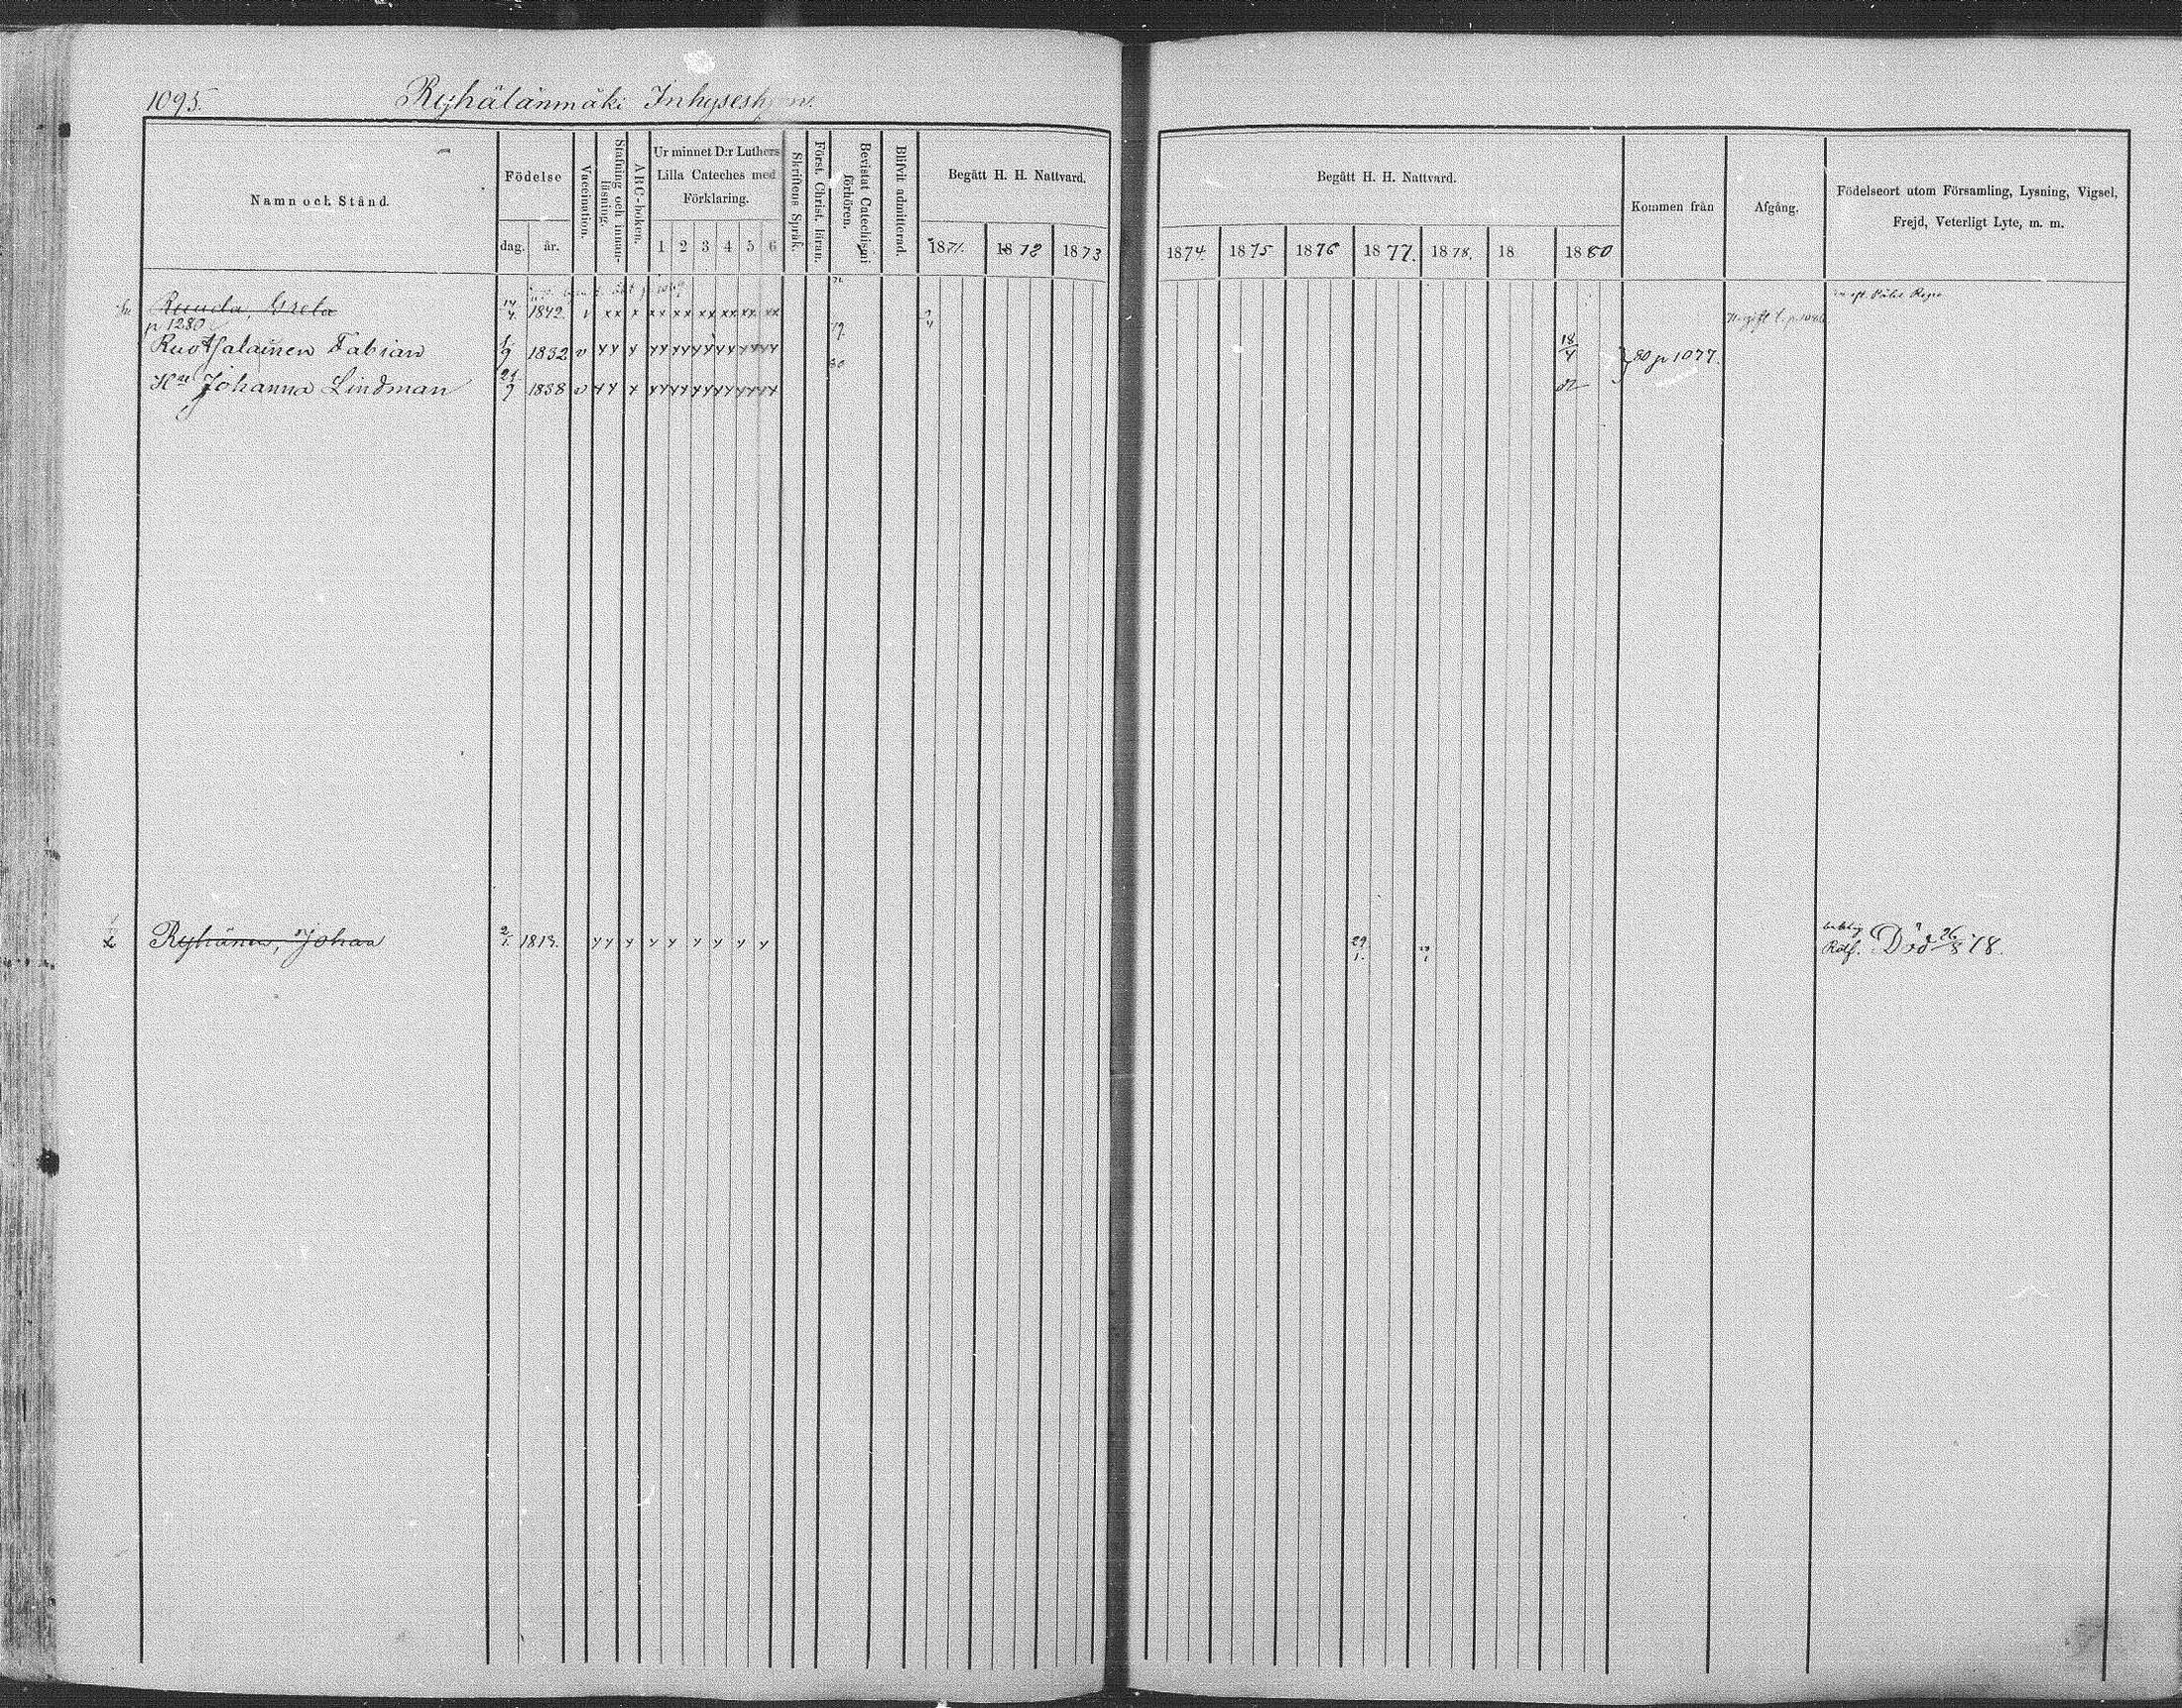 1095.
Ryhälänmäki Inhyseshjon.
Namn och Stånd.
Födelse
dag.
år.
Vaccination.
Stafning och innan-
läsning.
ABC-boken.
Ur minnet D:r Luthers
Lilla Cateches med
Förklaring.
1 2 3 4 5 6
Skriftens Språk.
Först. Christ. läran.
Bevistat Catechismi
förhören.
Blifvit admitterad.
Begått H. H. Nattvard.
1871. 1872 1873
Begått H. H. Nattvard.
1874. 1875 1876 1877. 1878. 18 1880
Kommen från
Afgång.
Födelseort utom Församling, Lysning, Vigsel,
Frejd, Veterligt Lyte, m. m.
Greta 14/4. 1842. v xx x xx xx xx xx xx xx
p 1280 79.
Ruotsalainen Fabian 1/9 1832 v yy y yy yy yy yy yy yy 18/4 80 p 1077.
80
Hu Johanna Lindman 21/9 1838 v yy y yy yy yy yy yy yy
Ryhänen, Johan 2/1. 1813. yy y y y y y y y 29/1. Död 26/8 78.